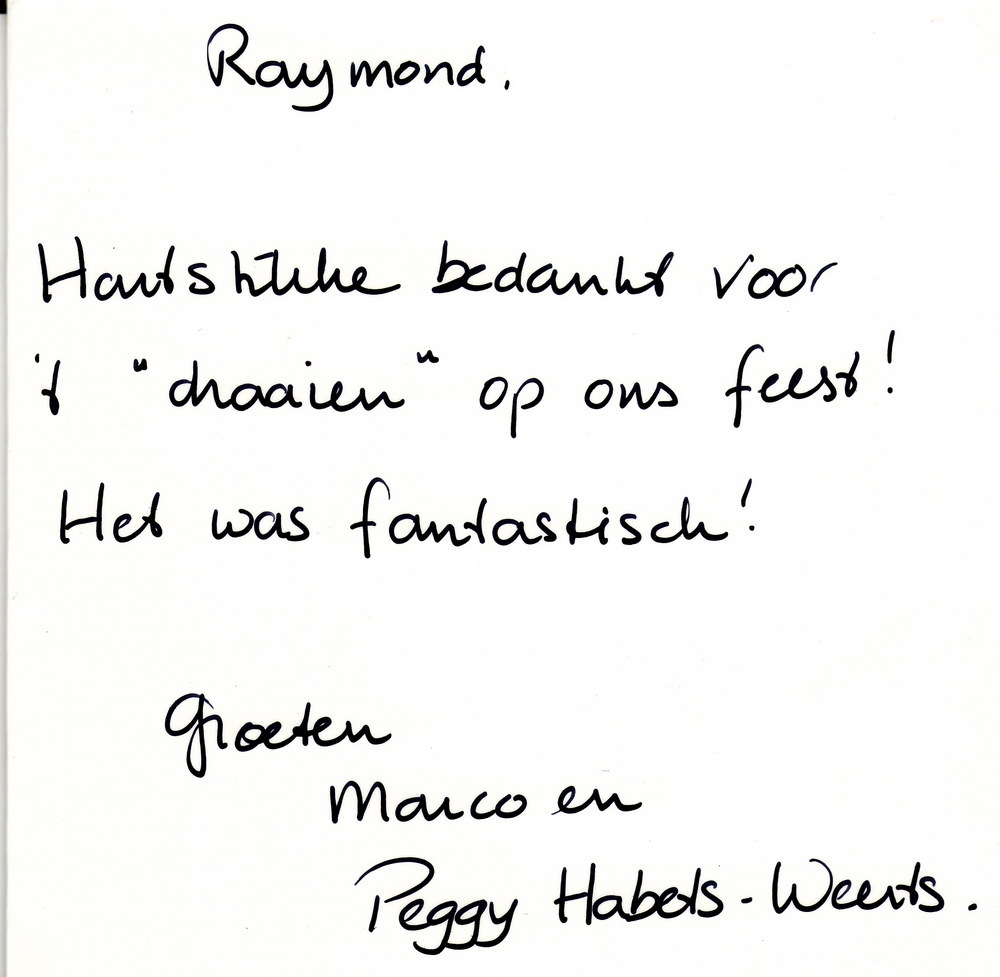 Raymond.
Hartstikke bedankt voor
't "draaien" op ons feest!
Het was fantastisch!
Groeten
Marco en
Peggy Habets-Weerts.